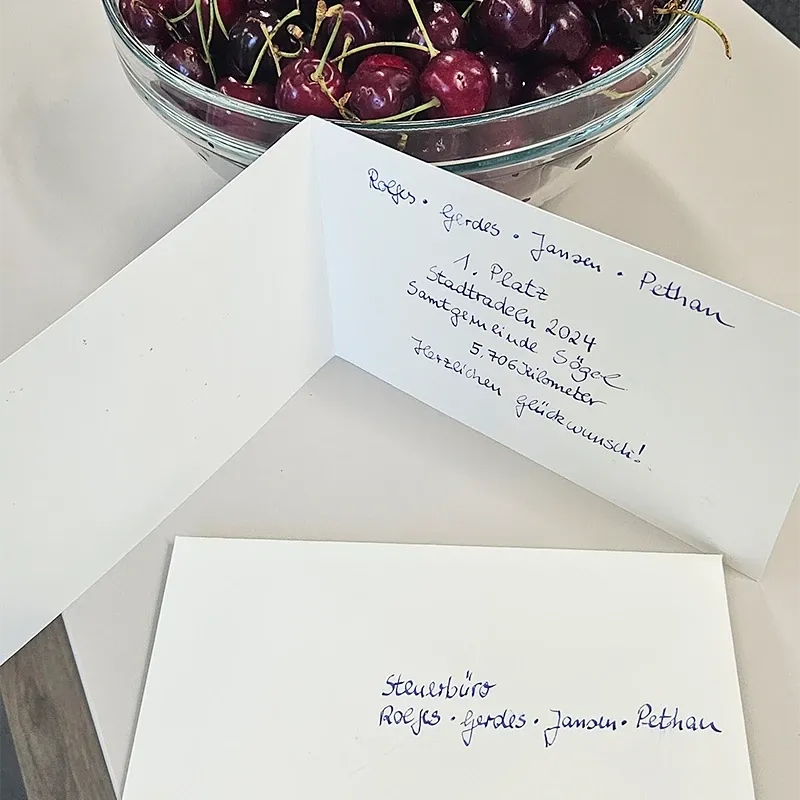 Rolfes · Gerdes · Jansen · Pethan
1. Platz
Stadtradeln 2024
Samtgemeinde Sögel
5.706 Kilometer
Herzlichen Glückwunsch!
Steuerbüro
Rolfes · Gerdes · Jansen · Pethan